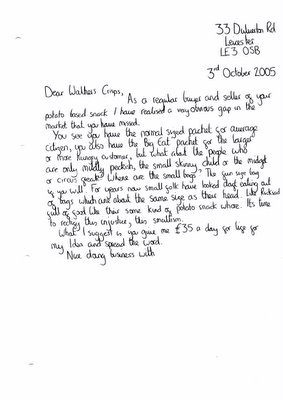 33 Dulverston Rd
Leicester
LE3 0SB
3rd October 2005
Dear Walkers Crisps,
As a regular buyer and seller of your
potato based snack I have realised a very obvious gap in the
market that you have missed.
You see you have the normal sized packet for average
citizen, you also have the Big Eat packet for the larger
or more hungry customer, but what about the people who
are only mildly peckish, the small skinny child or the midget
or circus freak? Where are the small bags? The fun size bag
if you will. For years now small folk have looked daft eating out
of bags which are about the same size as their head. Like
full of food like their some kind of potato snack whore. Its time
to rectify this injustice, this smallism.
What I suggest is you give me £35 a day for life for
my idea and spread the word.
Nice doing business with